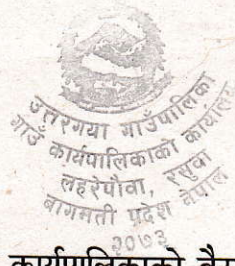 उत्तरगया गाउँपालिका
गाउँ कार्यपालिकाको कार्यालय
लहरेपौवा, रसुवा
बागमती प्रदेश नेपाल
२०७३
कार्यपालिकाको